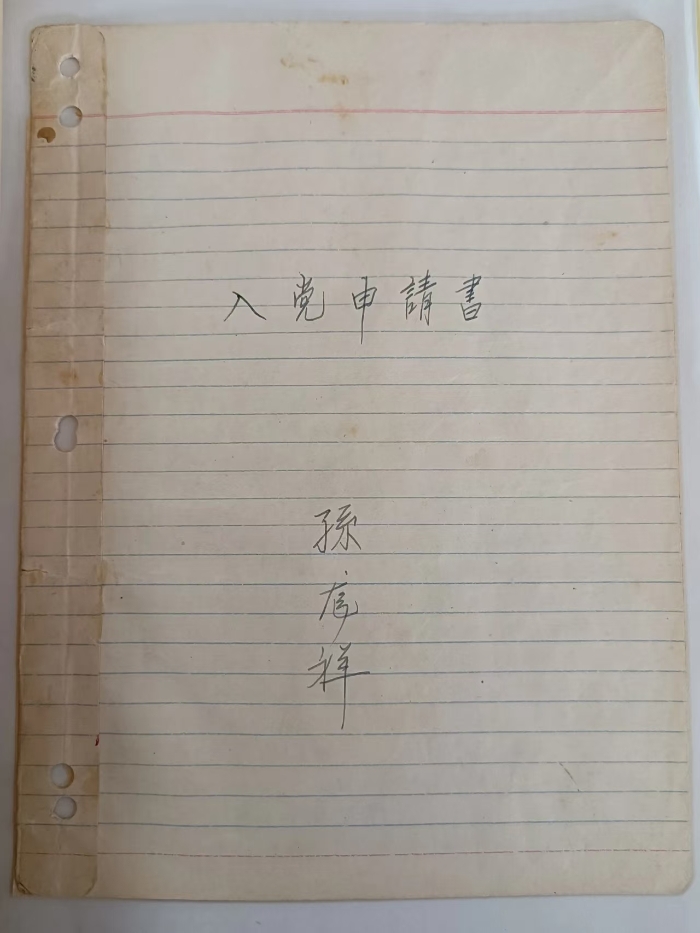 入党申請書
孫祥